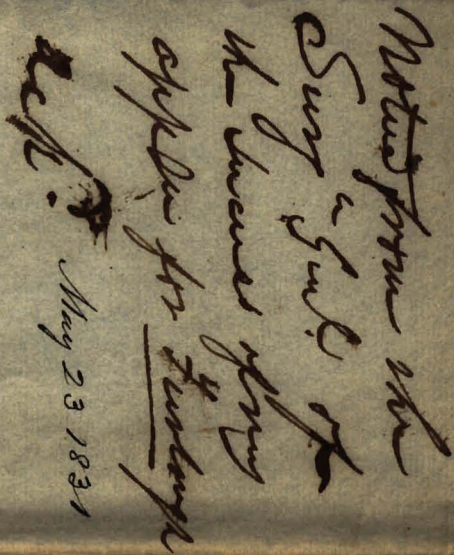 Notice from the
Surg n Genl. of
the success of my
applin for Furlough
May 23 1831